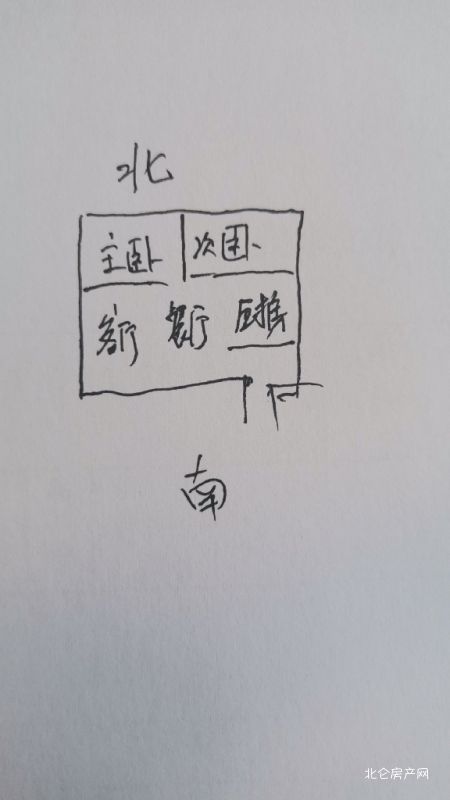 北
主卧 次卧
客厅 餐厅
南
北仑房产网